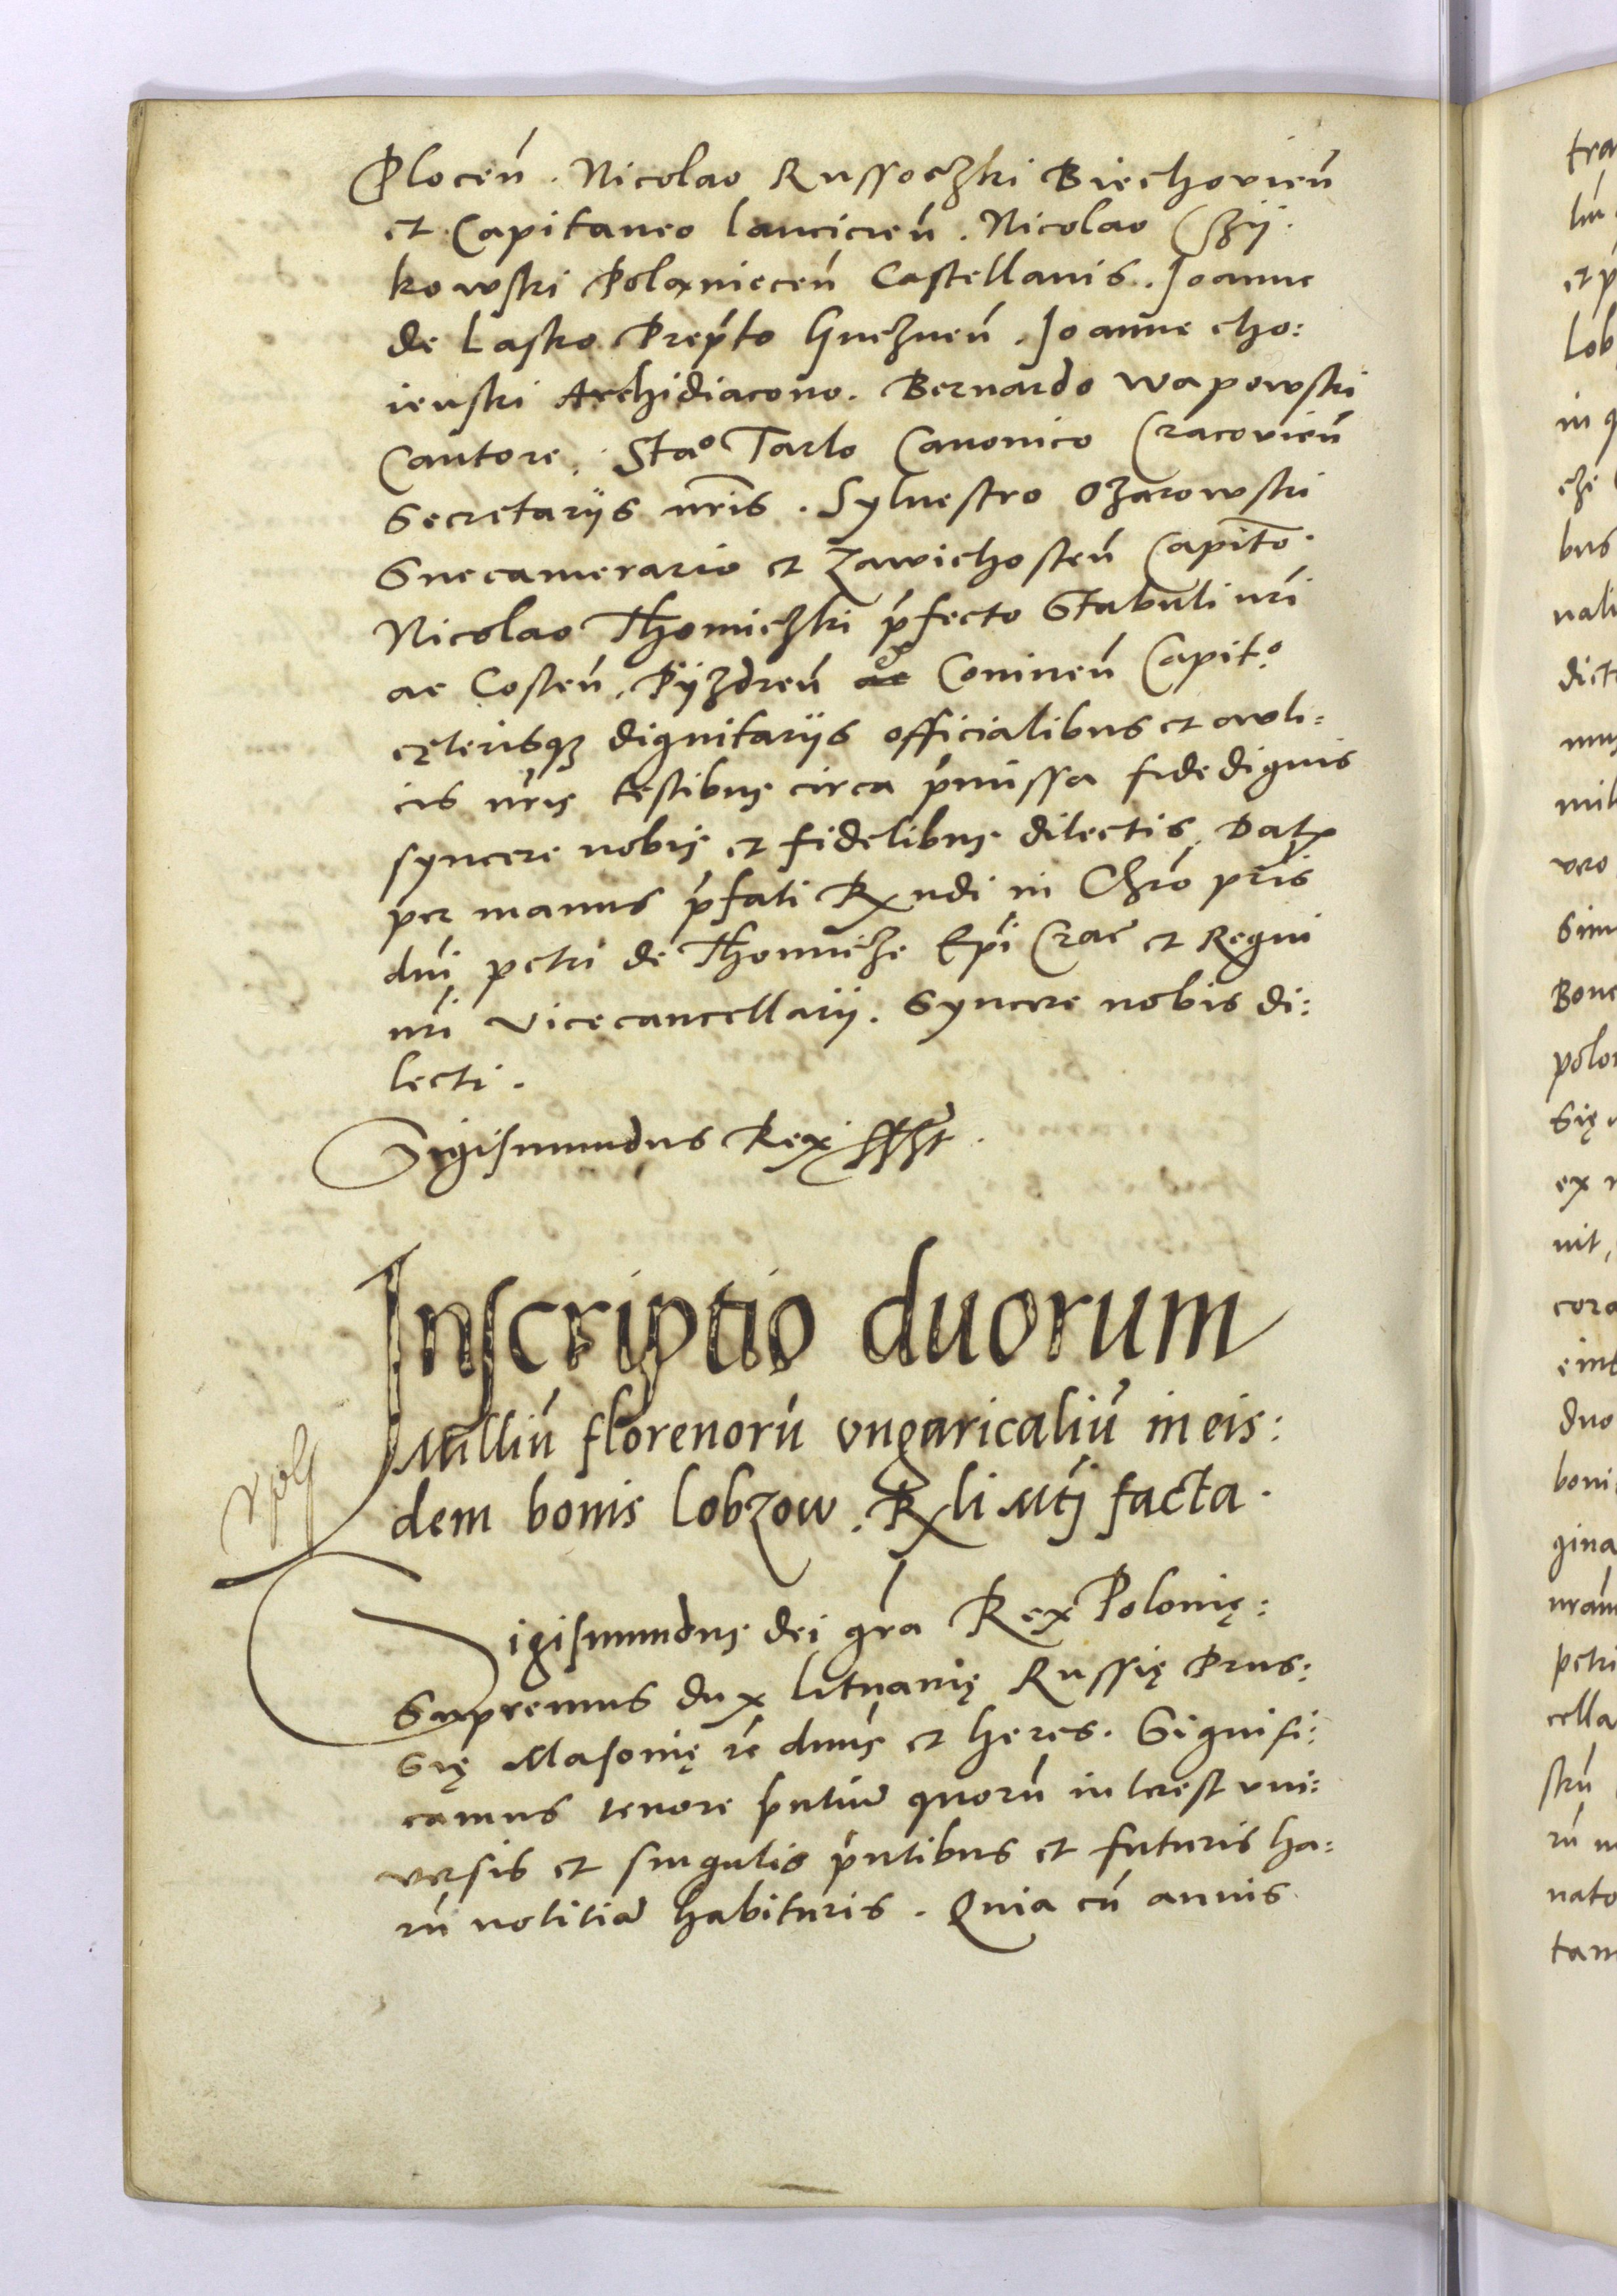 Plocen̄. Nicolao Russoczki Biechovien̄
et Capitaneo Lancicien̄. Nicolao Czÿ.
kowski Polaniecen̄ Castellanis. Joanne
de Lasko Prep̄to Gneznen̄. Joanne Cho:
ienski Archidiacono. Bernardo Wapowski
Cantore. Stao Tarlo Canonico Cracovien̄
Secretarijs nr̄is. Sylvestro Ozarowski
Succamerario et Zawichosten̄ Capito.
Nicolao Thomiczki p̄fecto Stabuli nr̄i
ac Costen̄. Pÿzdren̄ et Coninen̄ Capito.
cęterisqȝ dignitarijs officialibus et auli=
cis nr̄is testibus circa p̄missa fidedignis
syncere nobis et fidelibus dilectis. Datꝝ
per manus p̄fati Rꝝndi in Chro pr̄is
dn̄i petri de Thomicze Ep̄i Crac̄ et Regni
nr̄i vicecancellarij. Syncere nobis di:
lecti.
Sigismundus Rex sst.
Inscriptio duorum
Milliū florenorū ungaricaliū in eis:
dem bonis Lobzow. Rꝝli Mtj facta.
Sigismundus dei gr̄a Rex Polonię:
Supremus dux Lituanię Russię Prus:
się Masonię rē dnūs et heres. Signifi:
camus tenore p̄ntiū quorū interest uni:
versis et singulis p̄ntibus et futuris ha:
rū notitiā habituris. Quia cū annis
tra
et p
Lob
in q
bus
dict
mil
vero
Bone
polo
Się
ex
nit,
cora
duo
boni
gina
petri
cella
strū
rū
nato
tam